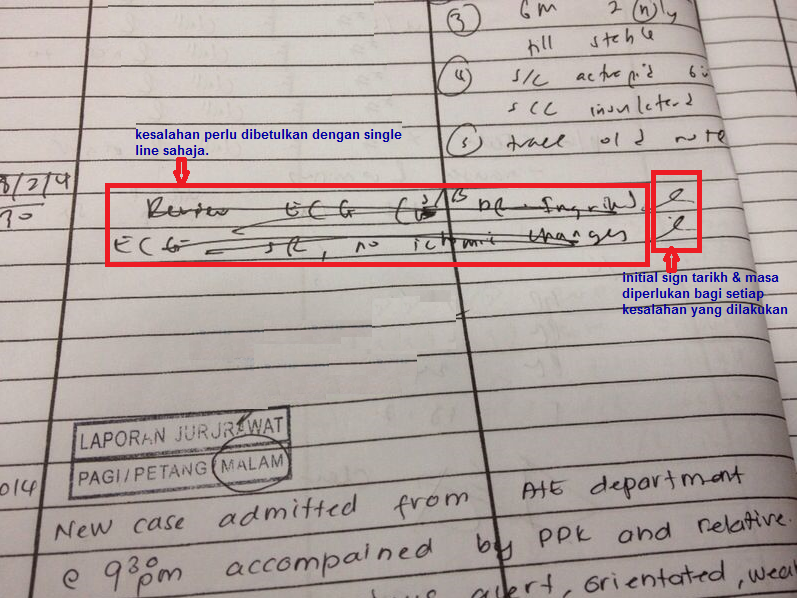 ③ 6m 2 (n)ly
till stable
④ s/c actrapid 6u
s/c insulatard
⑤ trace old note
kesalahan perlu dibetulkan dengan single
line sahaja.
8/2/4
30
Review ECG S/B DR.
ECG - SR, no changes
Initial sign tarikh & masa
diperlukan bagi setiap
kesalahan yang dilakukan
LAPORAN JURURAWAT
PAGI/PETANG/MALAM
014
New case admitted from A+E department
@ 9 30 pm accompained by PPK and relative.
alert, orientated, weak